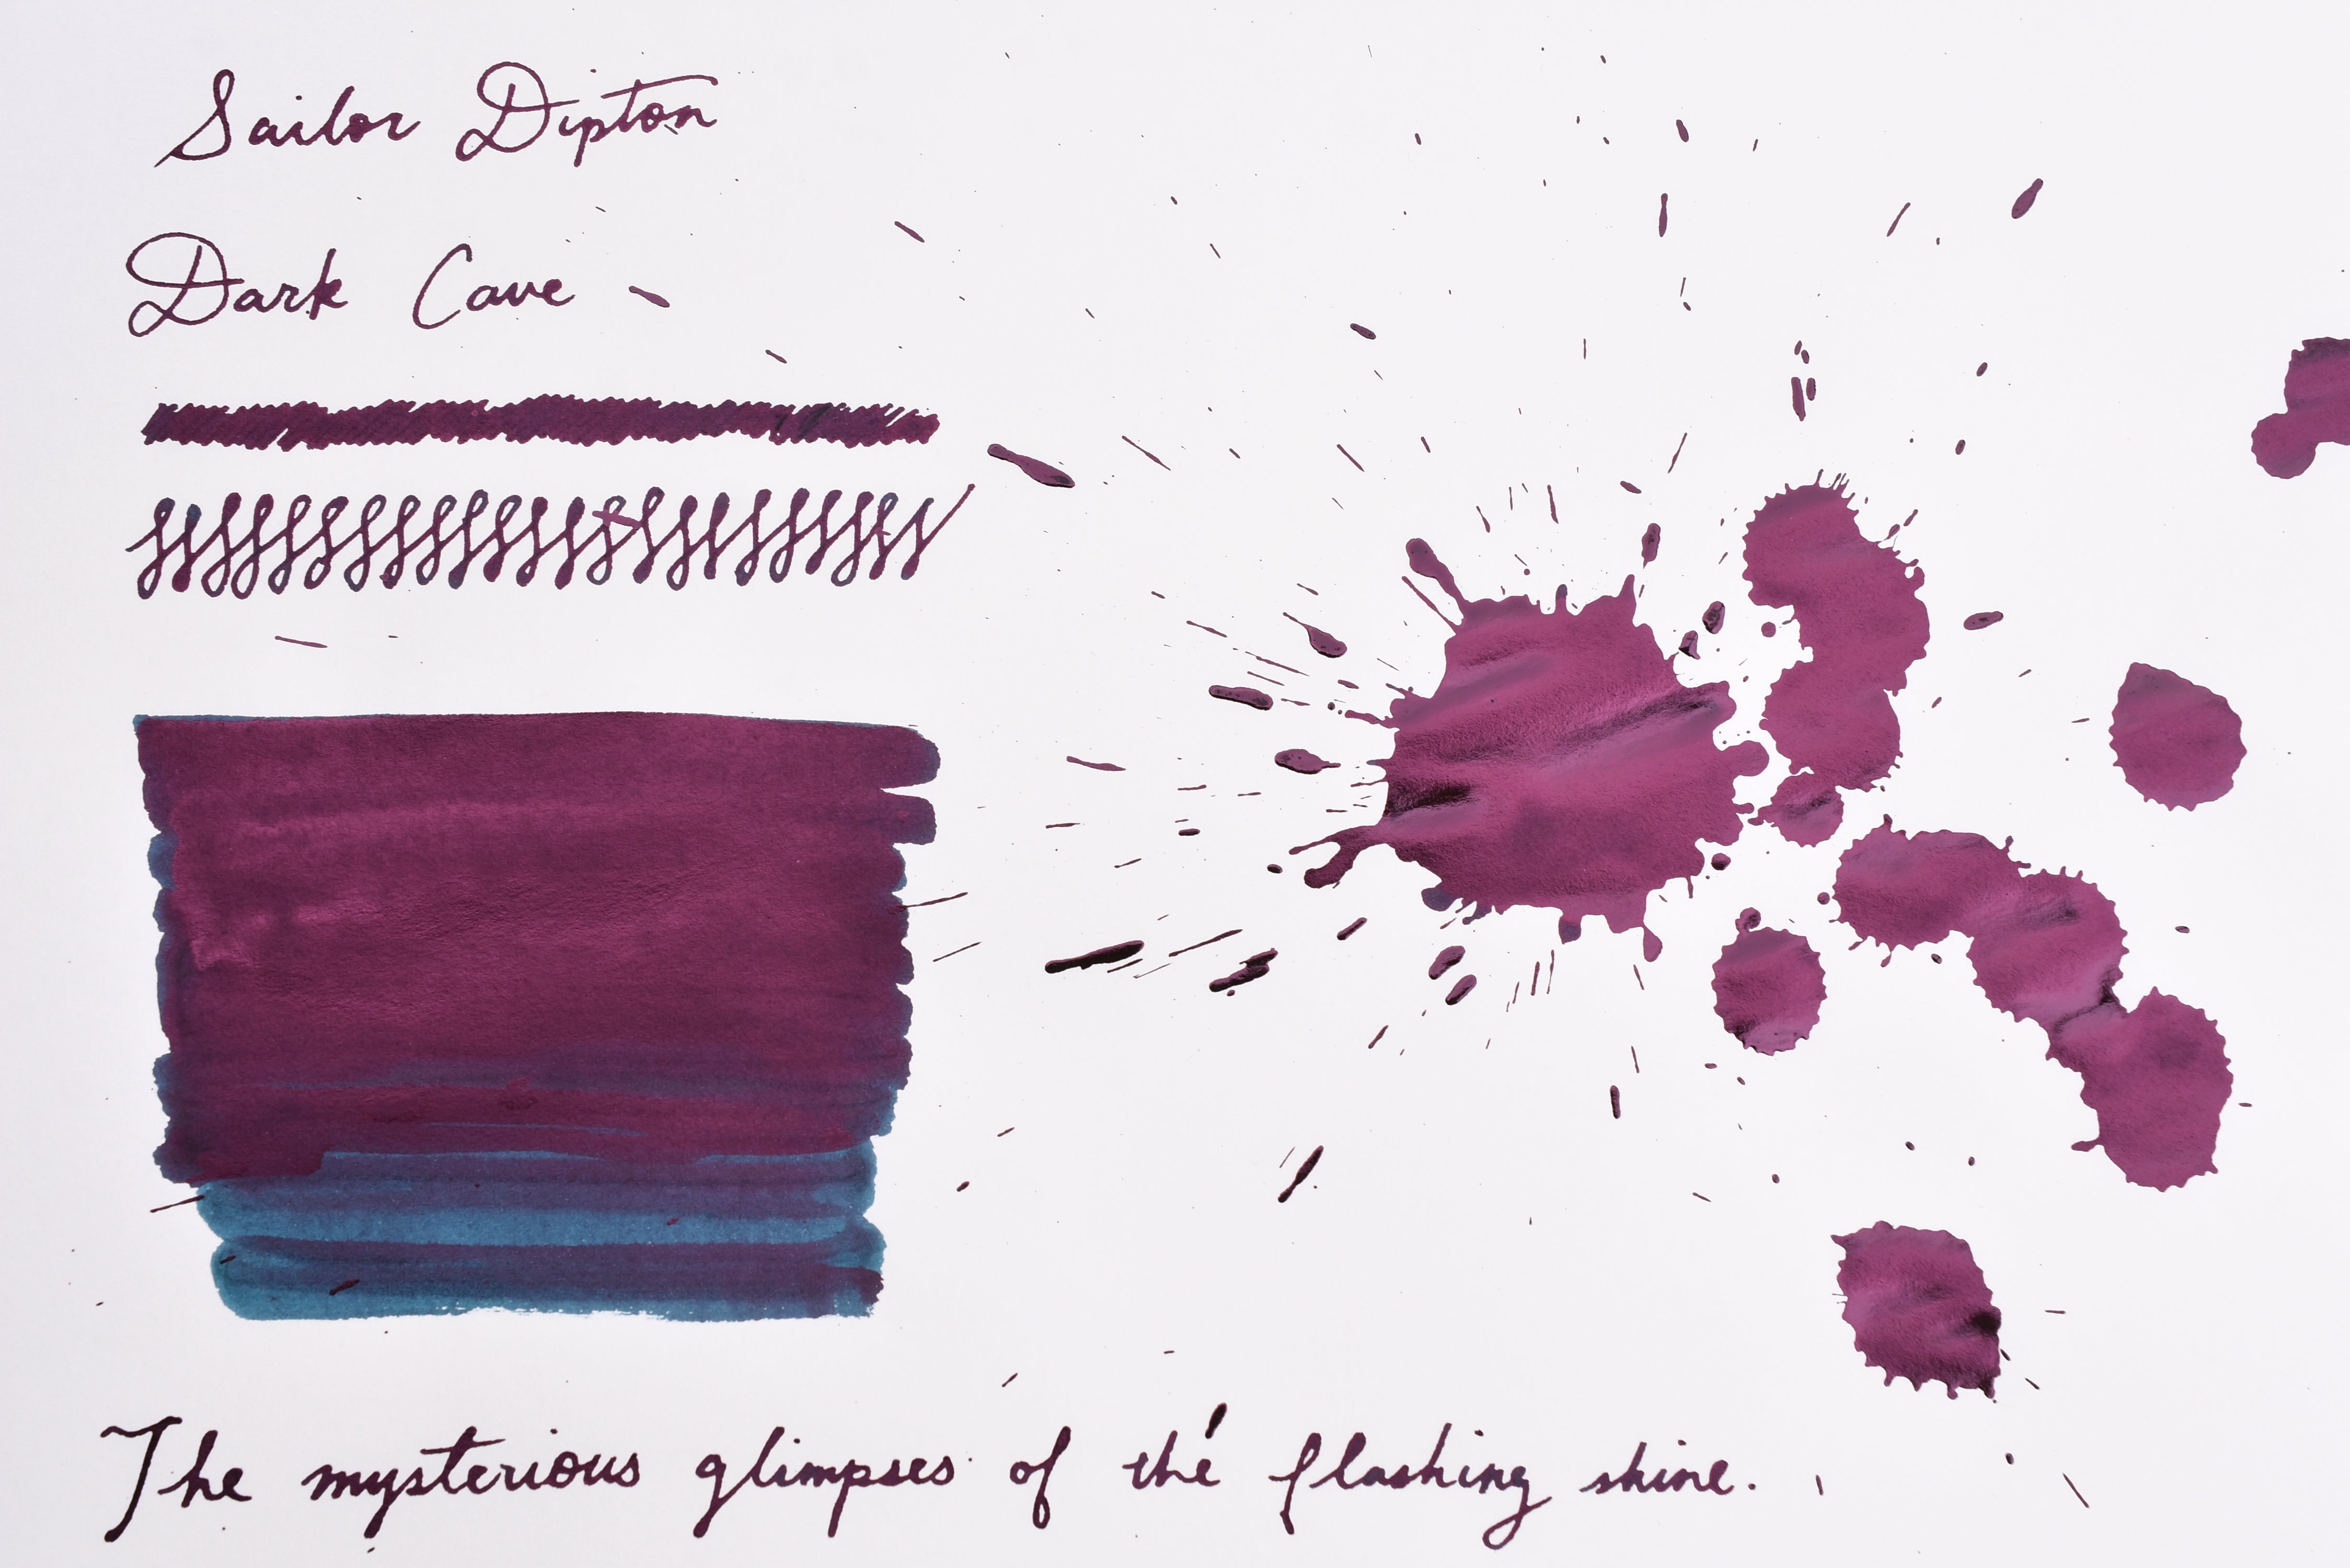 Sailor Dipton
Dark Cave
The mysterious glimpses of the flashing shine.